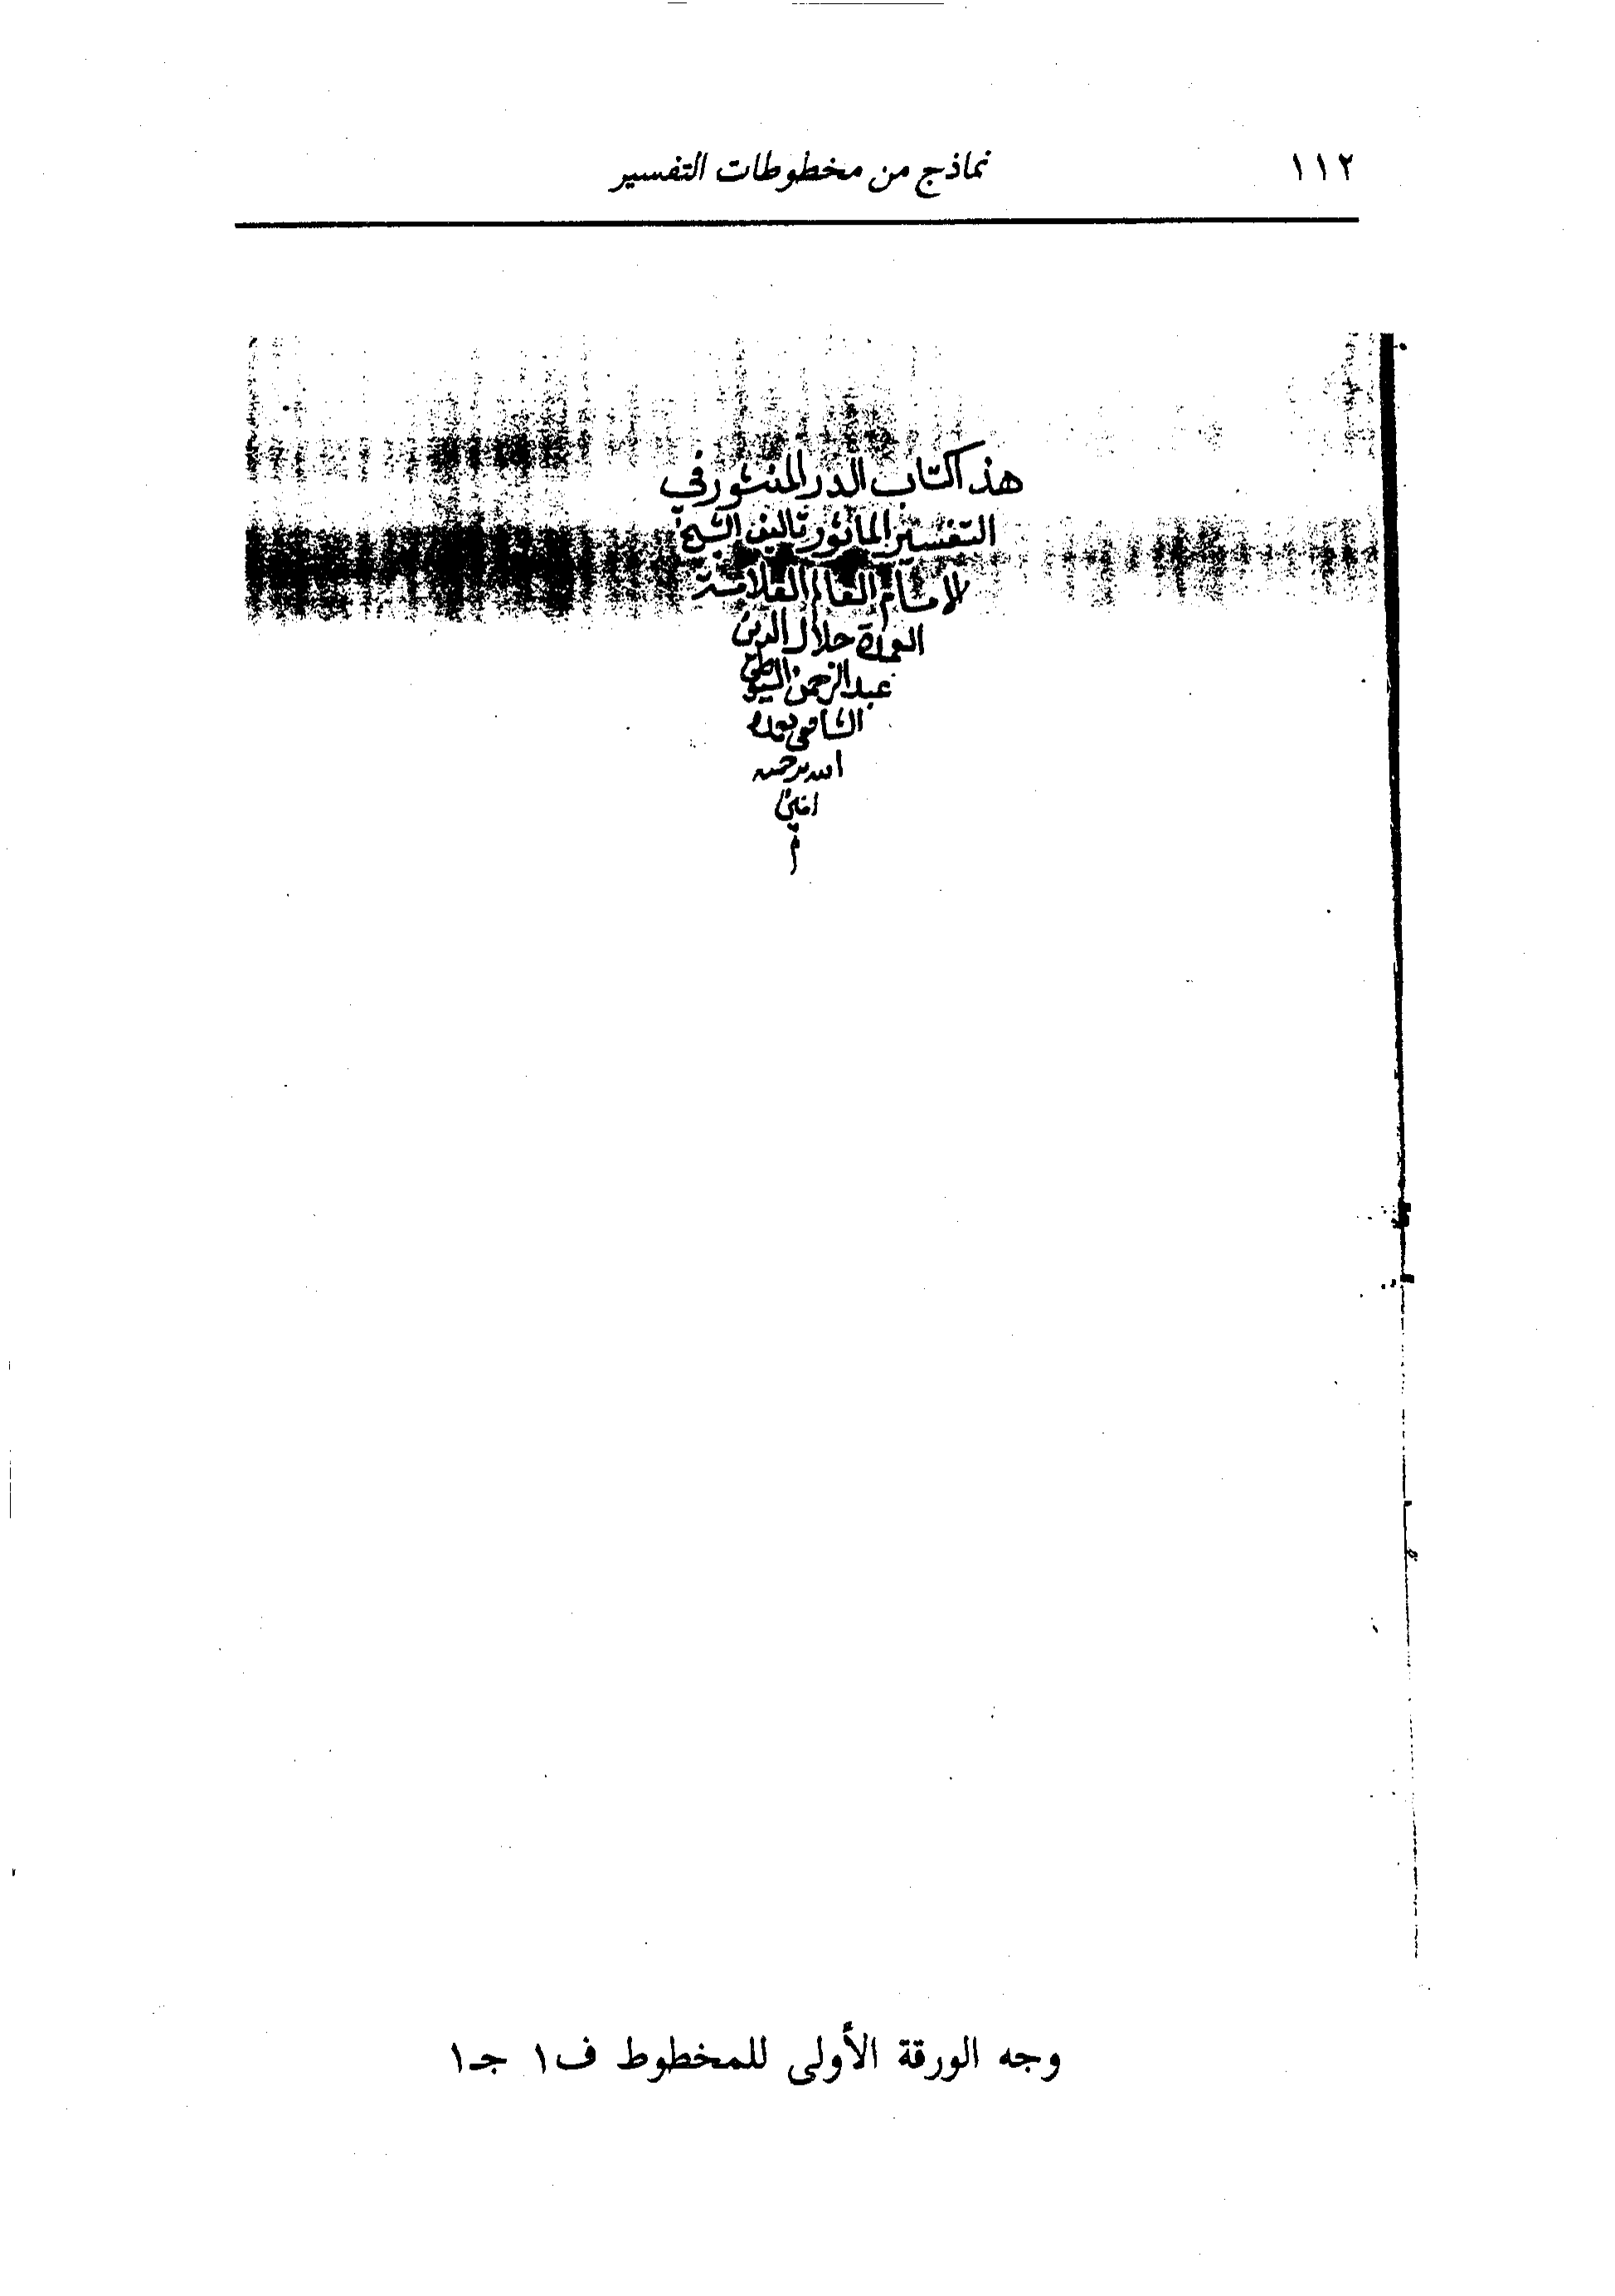 ١١٢
نماذج من مخطوطات التفسير
هذا كتاب الدر المنثور في
التفسير المأثور تأليف الشيخ
الإمام العالم العلامة
العمدة جلال الدين
عبد الرحمن السيوطي
الشافعي تغمده
الله برحمته
آمين
م
وجه الورقة الأولى للمخطوط ف١ جـ١